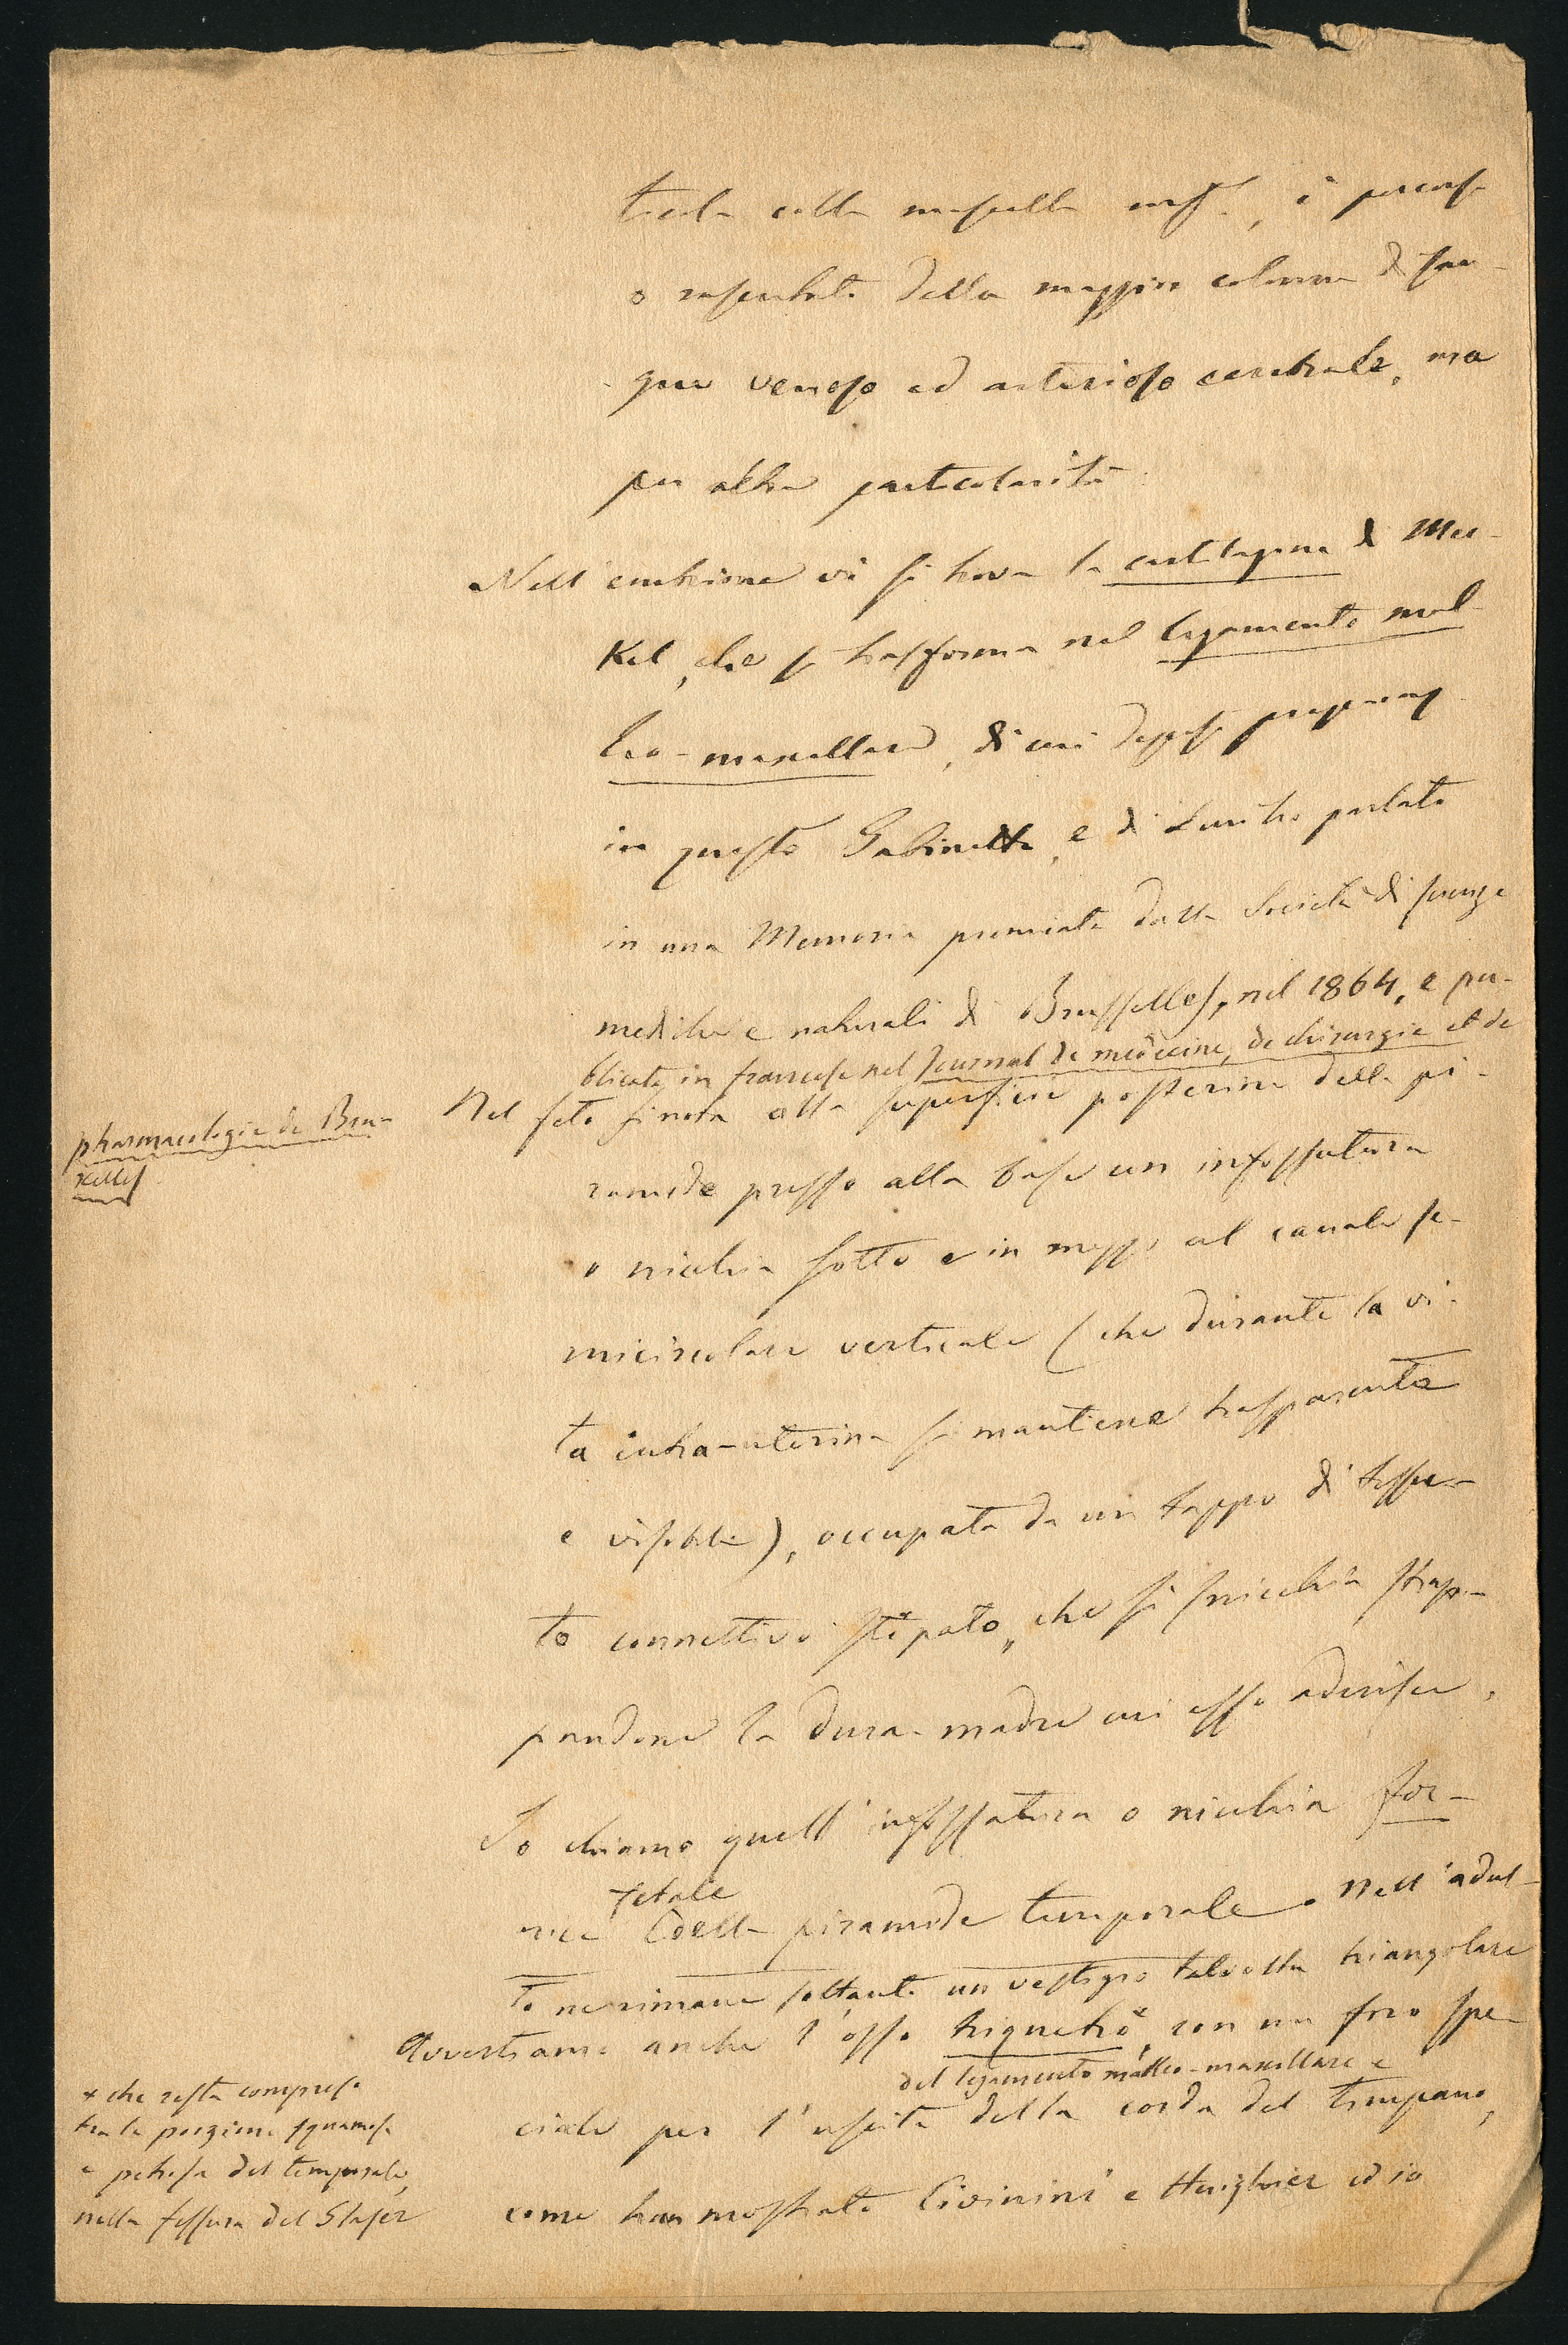 ticola colla mascella inf.e, è percorsa
o rasentata dalla maggior colonna di san-
gue venoso ed arterioso cerebrale, ma
per altre particolarità.
Nell'embrione vi si trova la cartilagine di Mec-
kel, che si trasforma nel legamento mal-
leo-maxellare, di cui deposi preparaz.
in questo Gabinetto, e di cui ho parlato
in una Memoria premiata dalla Società di scienze
mediche e naturali di Brusselles, nel 1864, e pu-
blicata in francese nel Journal de médecine, de chirurgie et de
pharmacologie de Bru-
xelles.
Nel feto si nota alla superficie posteriore della pi-
ramide presso alla base un infossatura
o nicchia sotto e in mezzo al canale se-
micircolare verticale (che durante la vi-
ta intra-uterina si mantiene trasparente
e visibile), occupata da un tappo di tessu-
to connettivo stipato, che si snicchia strap-
pandone la dura-madre cui esso aderisce.
Io chiamo quell'infossatura o nicchia for-
nice fetale della piramide temporale. Nell'adul-
to ne rimane soltanto un vestigio talvolta triangolare
Avvertiamo anche l'osso triquetro*, con un foro spe-
del legamento malleo-maxellare e
ciale per l'uscita della corda del timpano,
come han mostrato Civinini e Huighier ed io
* che resta compreso
tra la porzione squamosa
e petrosa del temporale,
nella fessura del Glaser